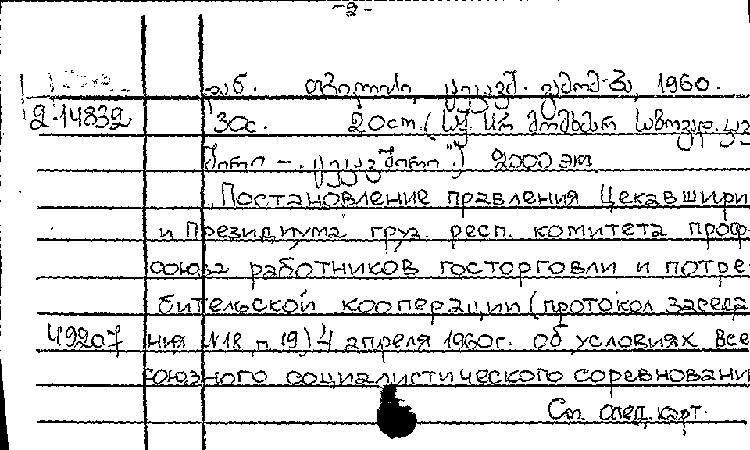 -2-
თბილისი, ცეკავშ. გამომ-ბა, 1960.
2-14832 30с. 20см. (საქ. სსრ
2000 ექ.
Постановление правления Цекавшири
и Президиума груз. респ. комитета проф-
союза работников госторговли и потре-
бительской кооперации (протокол заседа
49207 ния №18, п. 19) 4 апреля 1960г. об условиях все
союзного социалистического соревновани
См. след. карт.